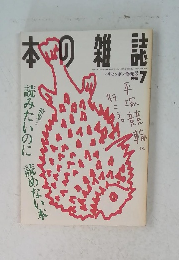 本の雑誌
7
平塚競輪に
行こう。
読みたいのに
読めない本